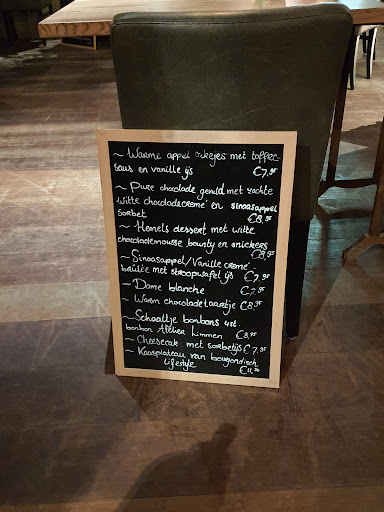 ~ Warme appel cakejes met toffee-
saus en vanille ijs €7,95
~ Pure chocolade gevuld met zachte
witte chocoladecreme en sinaasappel
sorbet €8,95
~ Hemels dessert met witte
chocolademousse bounty en snickers
€8,95
~ Sinaasappel/Vanille creme
brûlée met stroopwafel ijs €7,95
~ Dame blanche €7,95
~ Warm chocoladetaartje €8,95
~ Schaaltje bonbons 4st.
bonbon Atelier Limmen €8,95
~ Cheesecake met sorbetijs €7,95
~ Kaasplateau van bourgondisch
lifestyle
€11,50